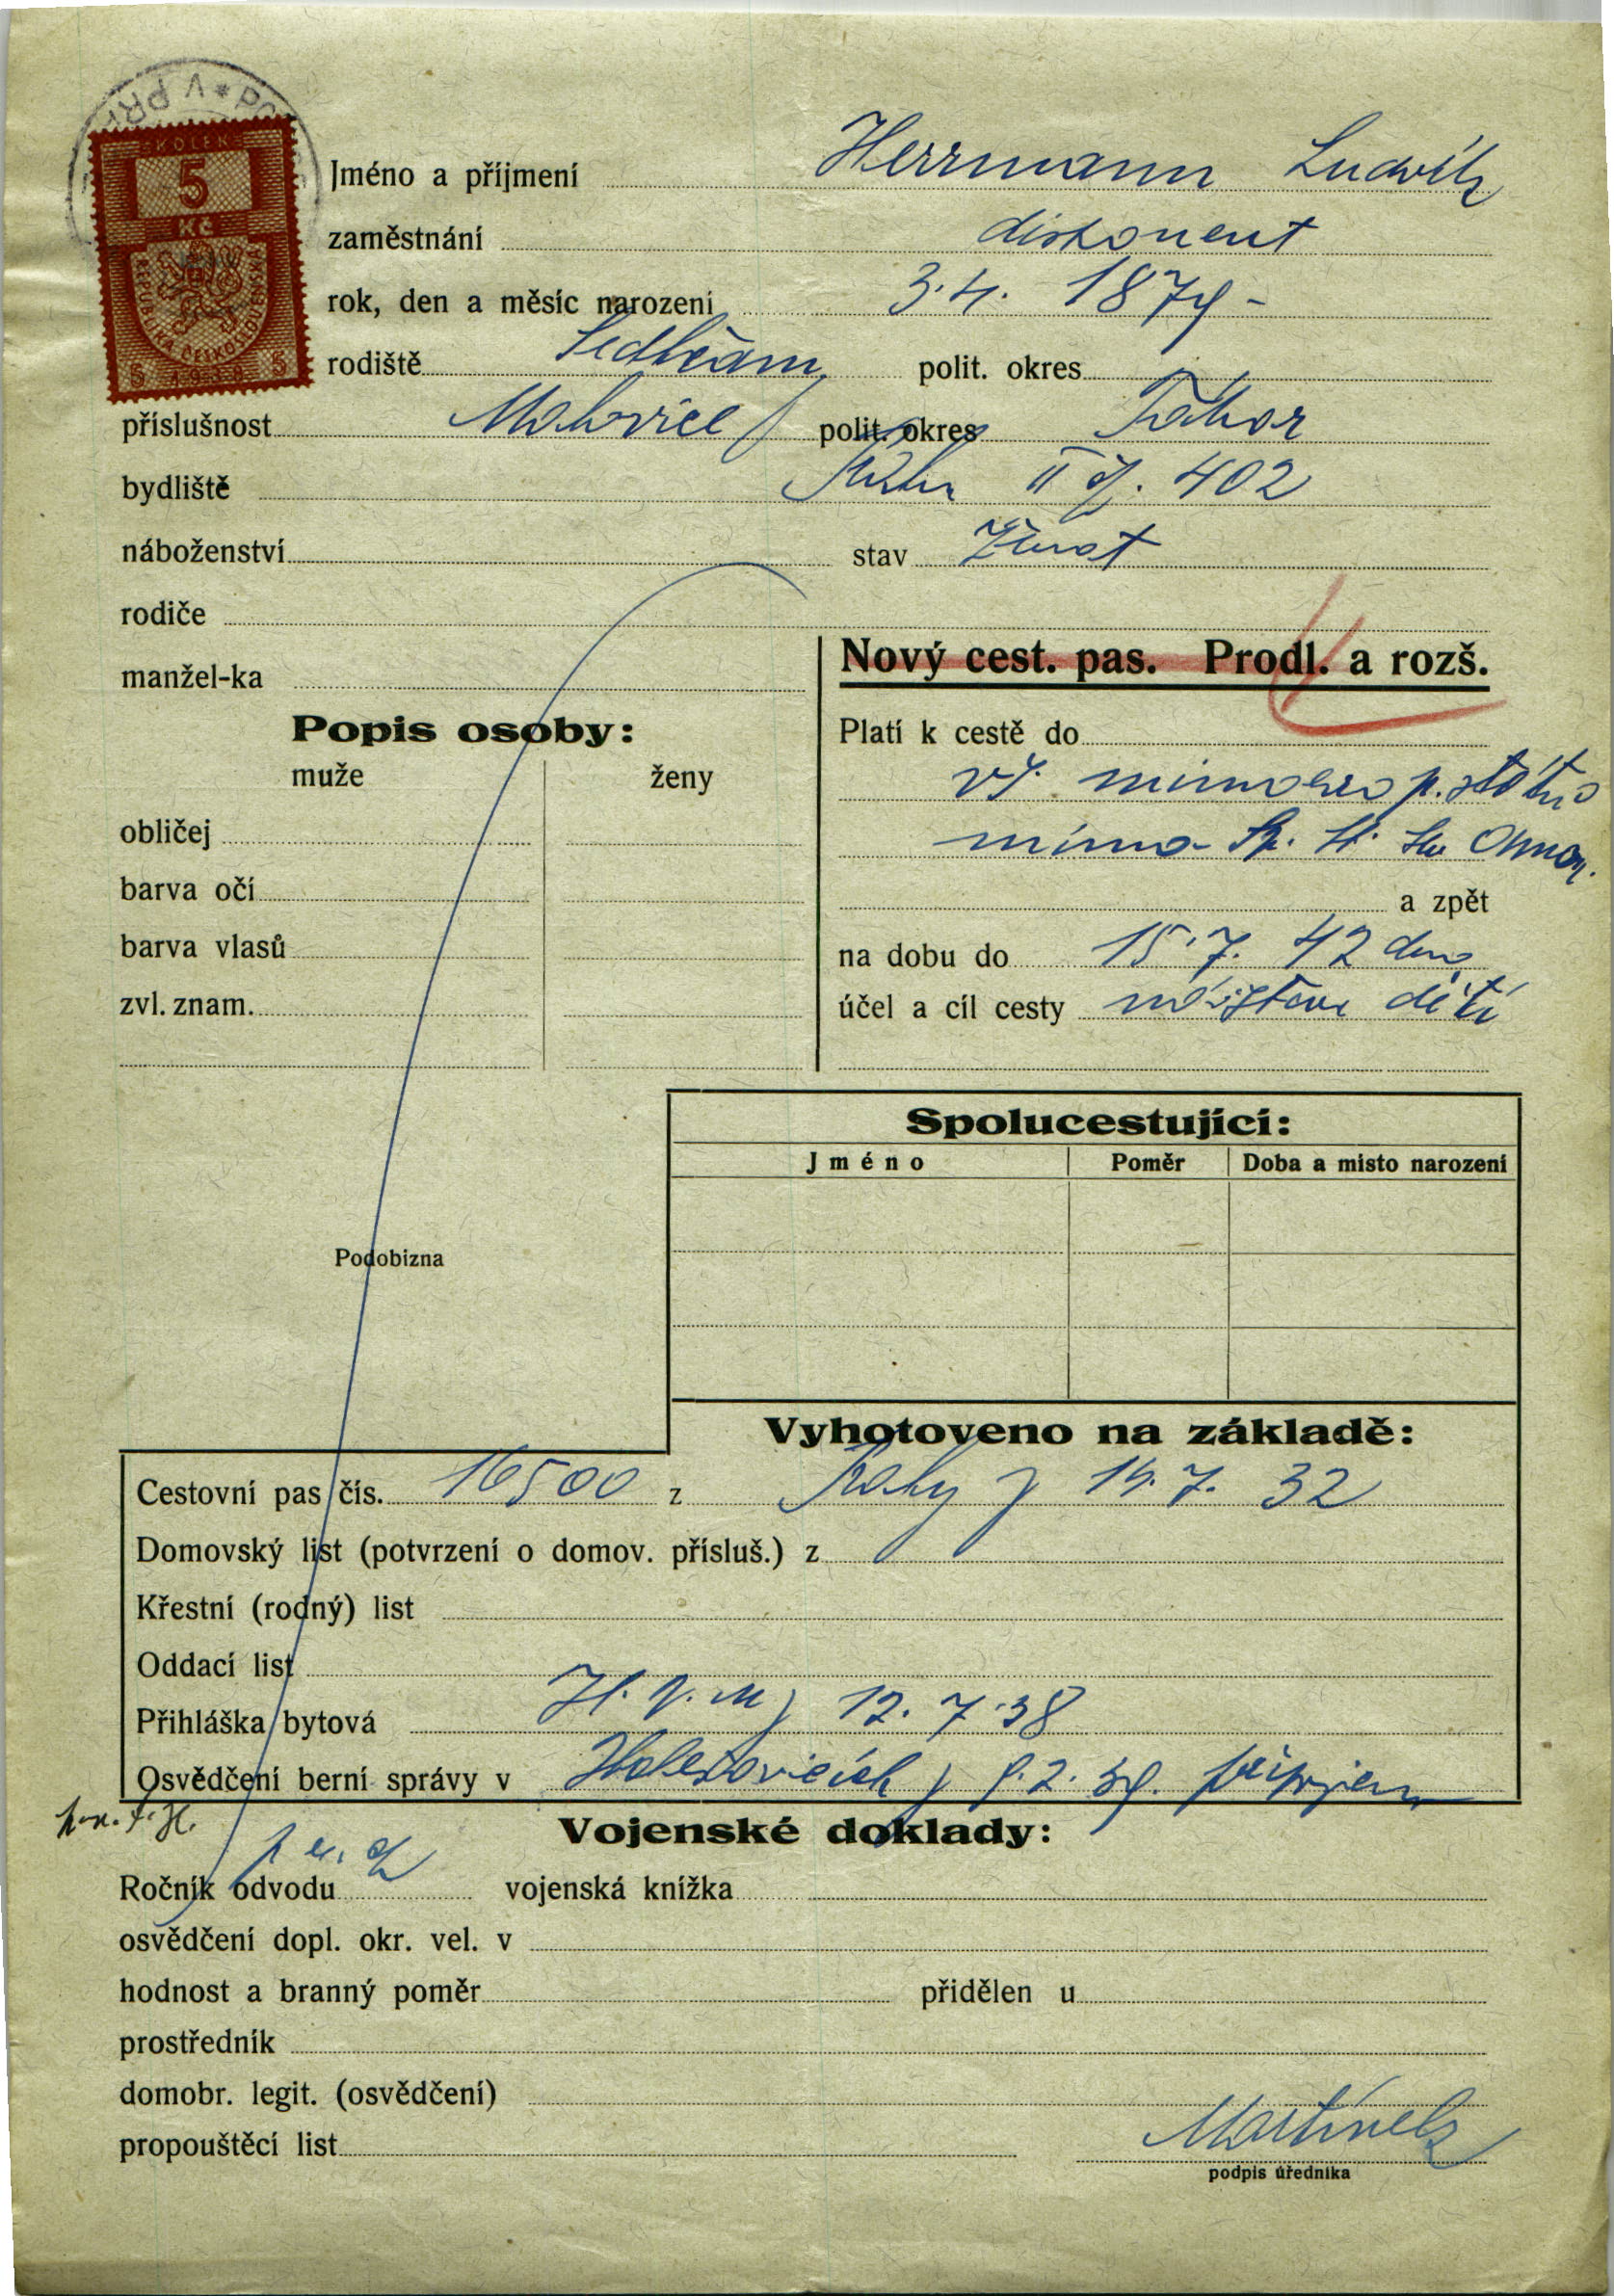 V PR
KOLEK
5
Kč
REPUBLIKA ČESKOSLOVENSKÁ
5 5
Jméno a příjmení Herrmann Ludvík
zaměstnání diskonent
rok, den a měsíc narození 3.4. 1879 -
rodiště polit. okres
příslušnost polit. okres Tábor
bydliště II 402
náboženství stav ženat
rodiče
manžel-ka
Nový cest. pas. Prodl. a rozš.
Popis osoby:
muže ženy
obličej
barva očí
barva vlasů
zvl. znam.
Platí k cestě do
mimo
a zpět
na dobu do 15.7. 42
účel a cíl cesty dětí
Spolucestující:
Jméno Poměr Doba a místo narození
Podobizna
Vyhotoveno na základě:
Cestovní pas čís. 16500 z Prahy 14.7. 32
Domovský list (potvrzení o domov. přísluš.) z
Křestní (rodný) list
Oddací list
Přihláška bytová 12. 7. 38
Osvědčení berní správy v Holešovicích
Vojenské doklady:
Ročník odvodu vojenská knížka
osvědčení dopl. okr. vel. v
hodnost a branný poměr přidělen u
prostředník
domobr. legit. (osvědčení)
propouštěcí list
Martínek
podpis úředníka